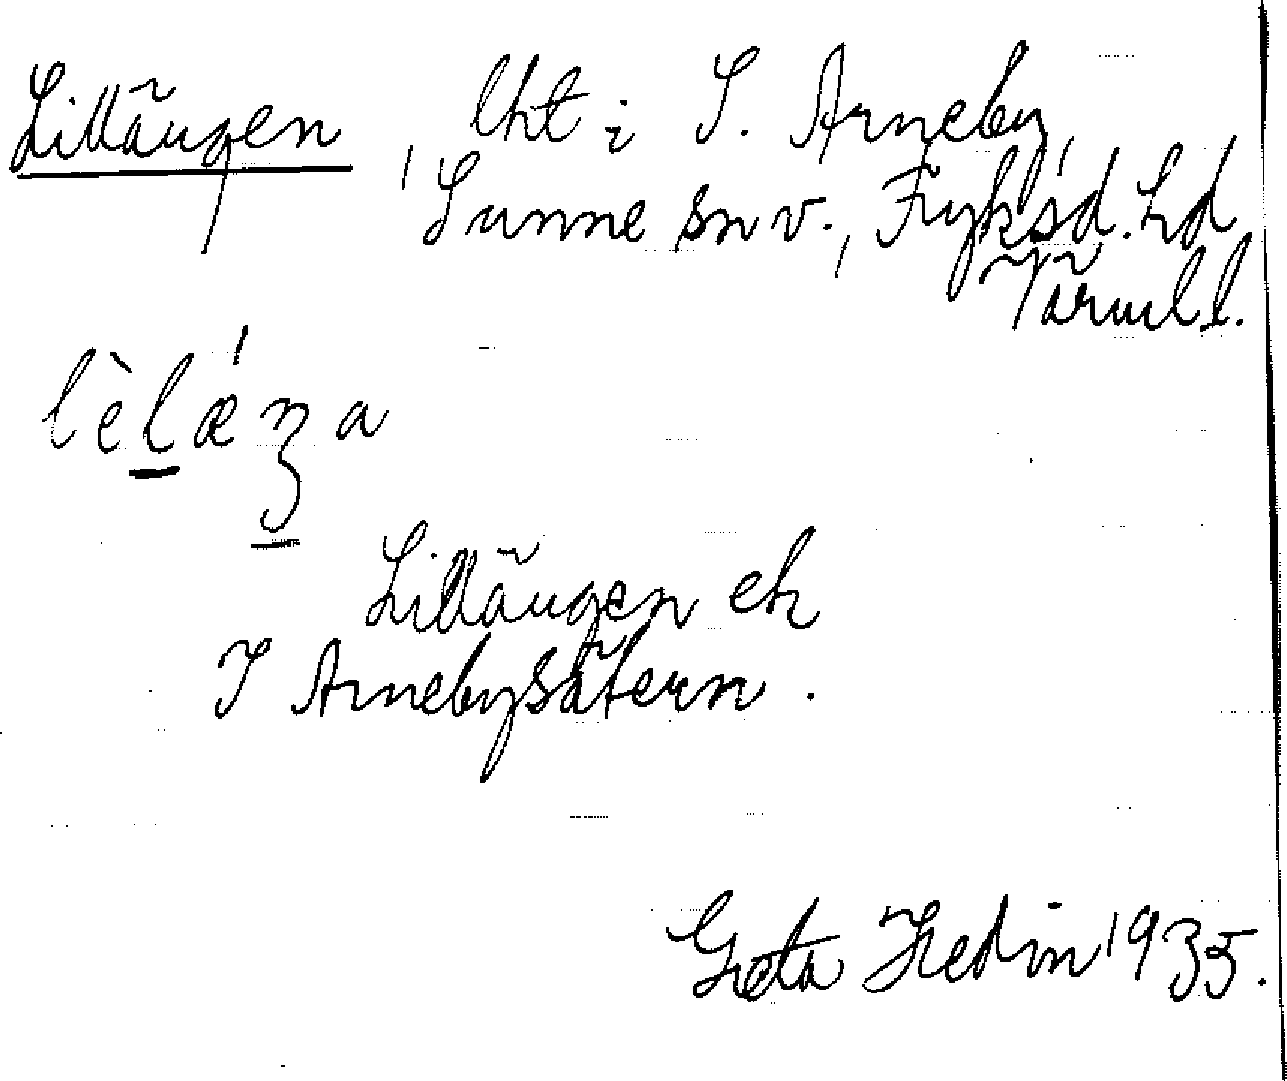 Lillängen, lht i S. Arneby,
Sunne sn v., Fryksd. hd
Värml. l.
lèlǽŋa
Lillängen ek
I Arnebysätern.
Greta Hedin 1935.